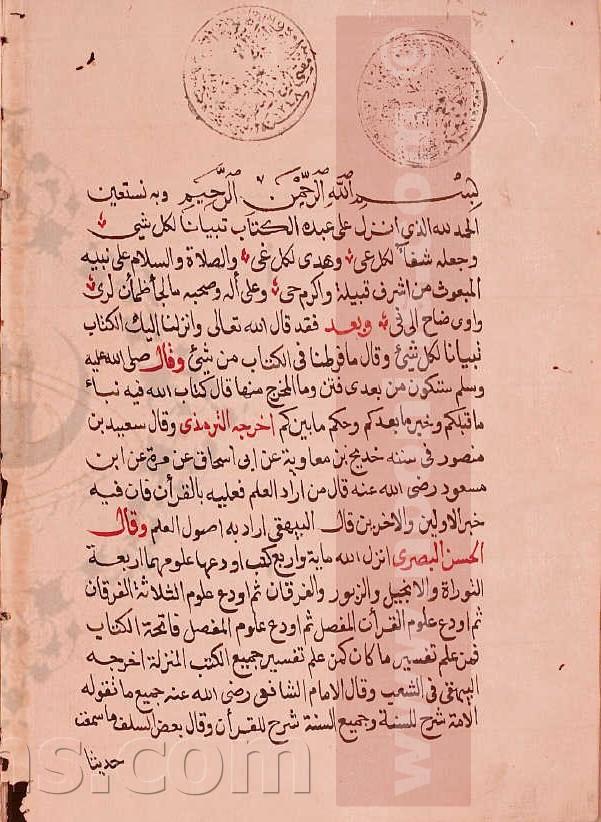 بسم الله الرحمن الرحيم وبه نستعين
الحمد لله الذي انزل على عبده الكتاب تبيانا لكل شي
وجعله شفآ لكل عي وهدى لكل غي والصلاة والسلام على نبيه
المبعوث من اشرف قبيلة واكرم حي وعلى أله وصحبه ما لجأ ظمأن لري
واوى ضاح الى في وبعد فقد قال الله تعالى وانزلنا اليك الكتاب
تبيانا لكل شيئ وقال ما فرطنا في الكتاب من شيئ وقال صلى الله عليه
وسلم ستكون من بعدى فتن وما المخرج منها قال كتاب الله فيه نباء
ما قبلكم وخبر ما بعدكم وحكم ما بينكم اخرجه الترمذى وقال سعيد بن
منصور فى سننه خديج بن معاوية عن ابى اسحاق عن مرة عن ابن
مسعود رضى الله عنه قال من اراد العلم فعليه بالقرأن فان فيه
خبر الاولين والاخرين قال البيهقى اراد به اصول العلم وقال
الحسن البصرى انزل الله ماية واربع كتب اودعها علومهما اربعة
التوراة والانجيل والزبور والفرقان ثم اودع علوم الثلاثة الفرقان
ثم اودع علوم القرأن المفصل ثم اودع علوم المفصل فاتحة الكتاب
فمن علم تفسيرها كان كمن علم تفسير جميع الكتب المنزلة اخرجه
البيهقى فى الشعب وقال الامام الشافعى رضى الله عنه جميع ما تقوله
الامة شرح للسنة وجميع السنة شرح للقرأن وقال بعض السلف ما سمعت
حديثا